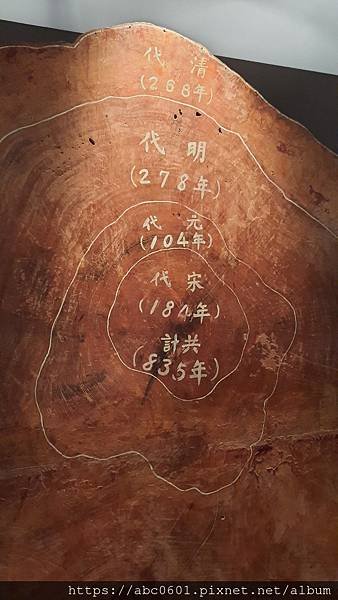 清代
(268年)
明代
(278年)
元代
(104年)
宋代
(184年)
共計
(835年)
https://abc0601.pixnet.net/album